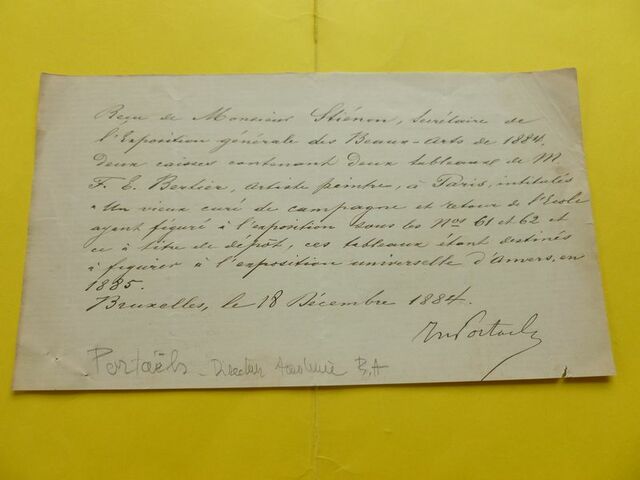 Reçu de Monsieur Stiénon, secrétaire de
l'Exposition générale des Beaux-Arts de 1884.
deux caisses contenant deux tableaux de M.
F. E. Bertier, artiste peintre, à Paris, intitulés
"Un vieux curé de campagne et retour de l'Ecole
ayant figuré à l'expostion sous les Nos 61 et 62 et
ce à titre de dépôt, ces tableaux étant destinés
à figurer à l'exposition universelle d'Anvers, en
1885.
Bruxelles, le 18 Décembre 1884.
Portaels
Portaëls - Directeur Académie B.A